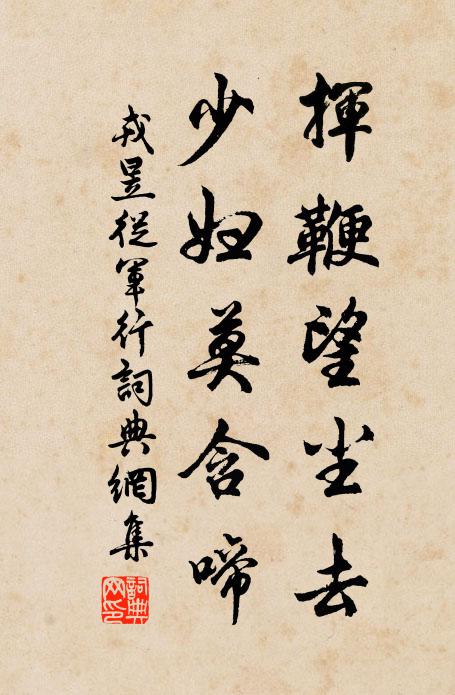 揮鞭望尘去
少妇莫含啼
戎昱從軍行詞典網集
詞典